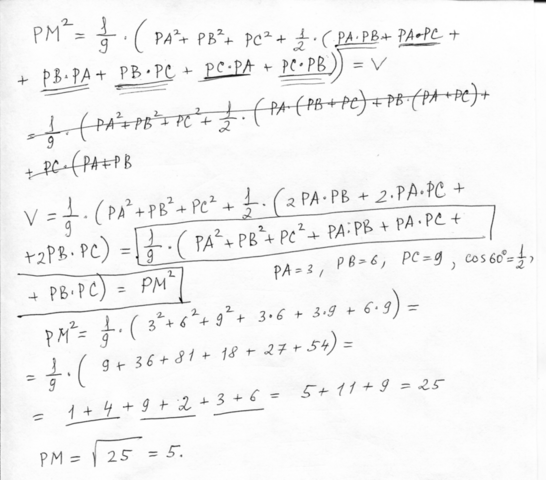 PM² = 1/9 · (PA² + PB² + PC² + 1/2 · (PA·PB + PA·PC +
+ PB·PA + PB·PC + PC·PA + PC·PB)) = V
= 1/9 · (PA² + PB² + PC² + 1/2 · (PA·(PB+PC) + PB·(PA+PC) +
+ PC·(PA+PB
V = 1/9 · (PA² + PB² + PC² + 1/2 · (2PA·PB + 2·PA·PC +
+ 2PB·PC) = 1/9 · (PA² + PB² + PC² + PA·PB + PA·PC +
+ PB·PC) = PM²
PA = 3, PB = 6, PC = 9, cos 60° = 1/2,
PM² = 1/9 · (3² + 6² + 9² + 3·6 + 3·9 + 6·9) =
= 1/9 · (9 + 36 + 81 + 18 + 27 + 54) =
= 1 + 4 + 9 + 2 + 3 + 6 = 5 + 11 + 9 = 25
PM = √25 = 5.